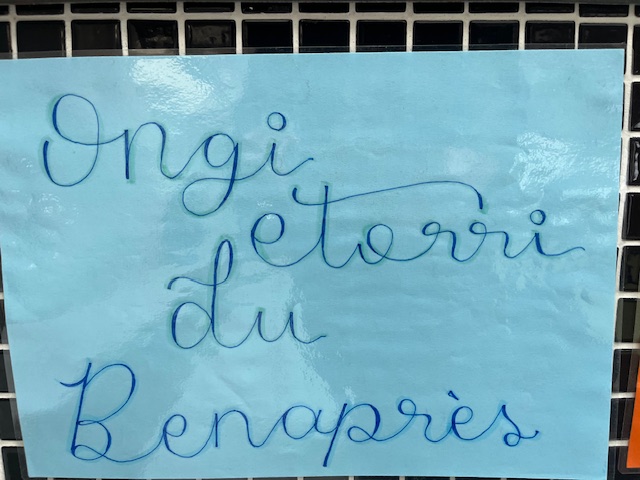 Ongi
etorri
du
Benaprès